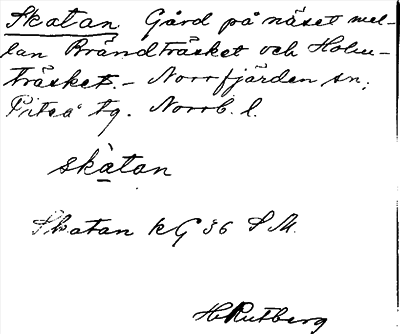 Skatan. Gård på näset mel-
lan Brändträsket och Holm-
träsket. – Norrfjärden sn;
Piteå tg. Norrb. l.
skàtan
Skatan kG 36 S M.
H Rutberg